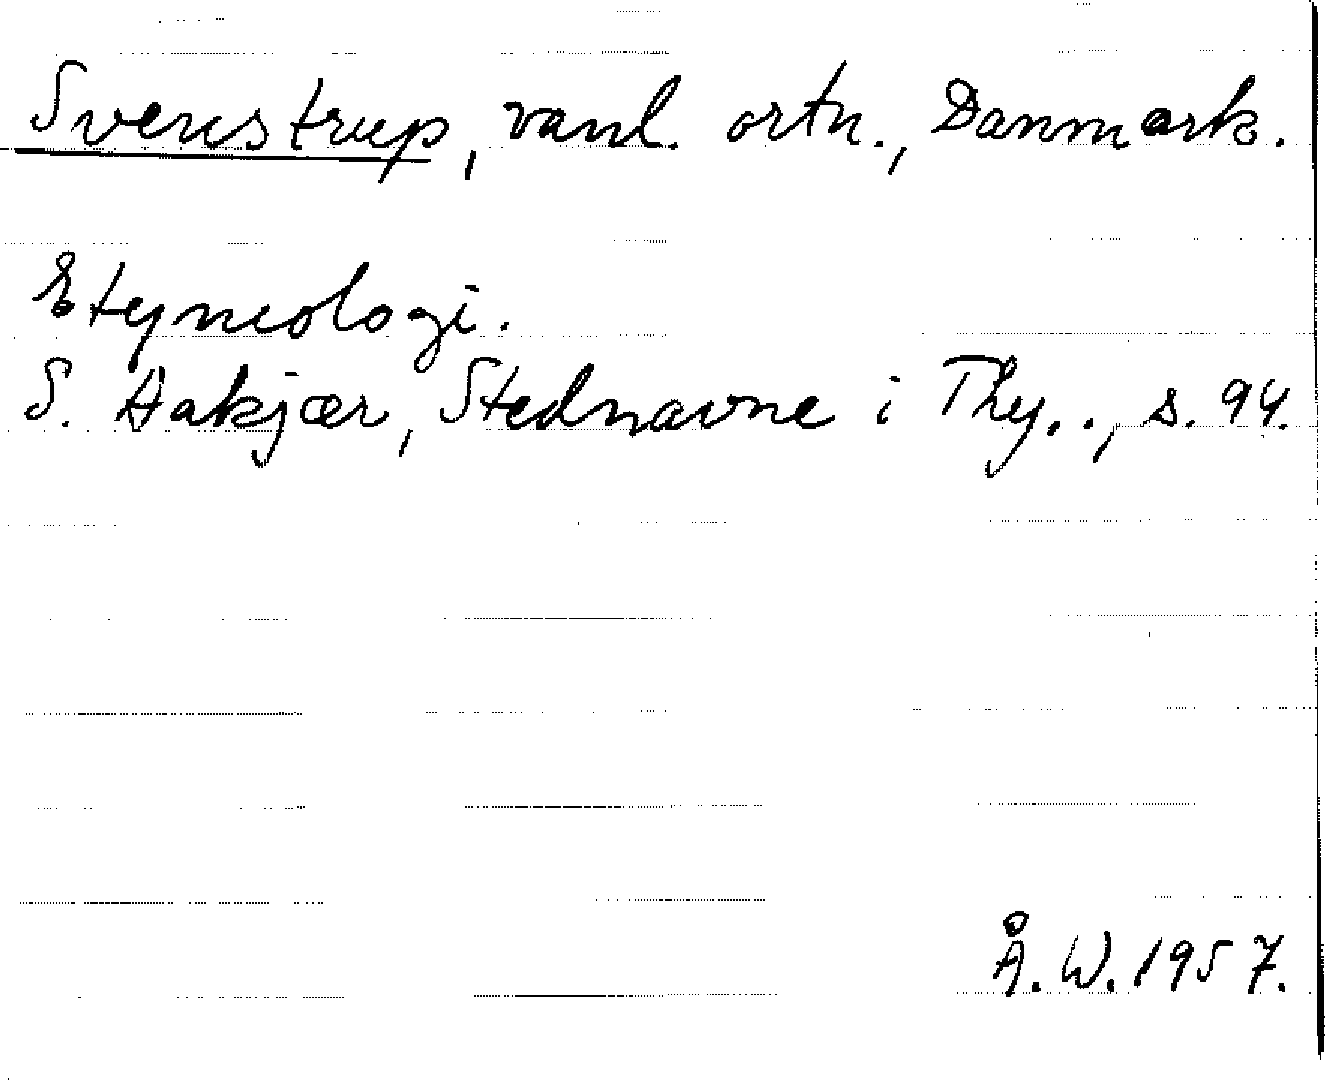 Svenstrup, vanl. ortn., Danmark.
Etymologi.
S. Aakjær, Stednavne i Thy.., s. 94.
Å. W. 1957.